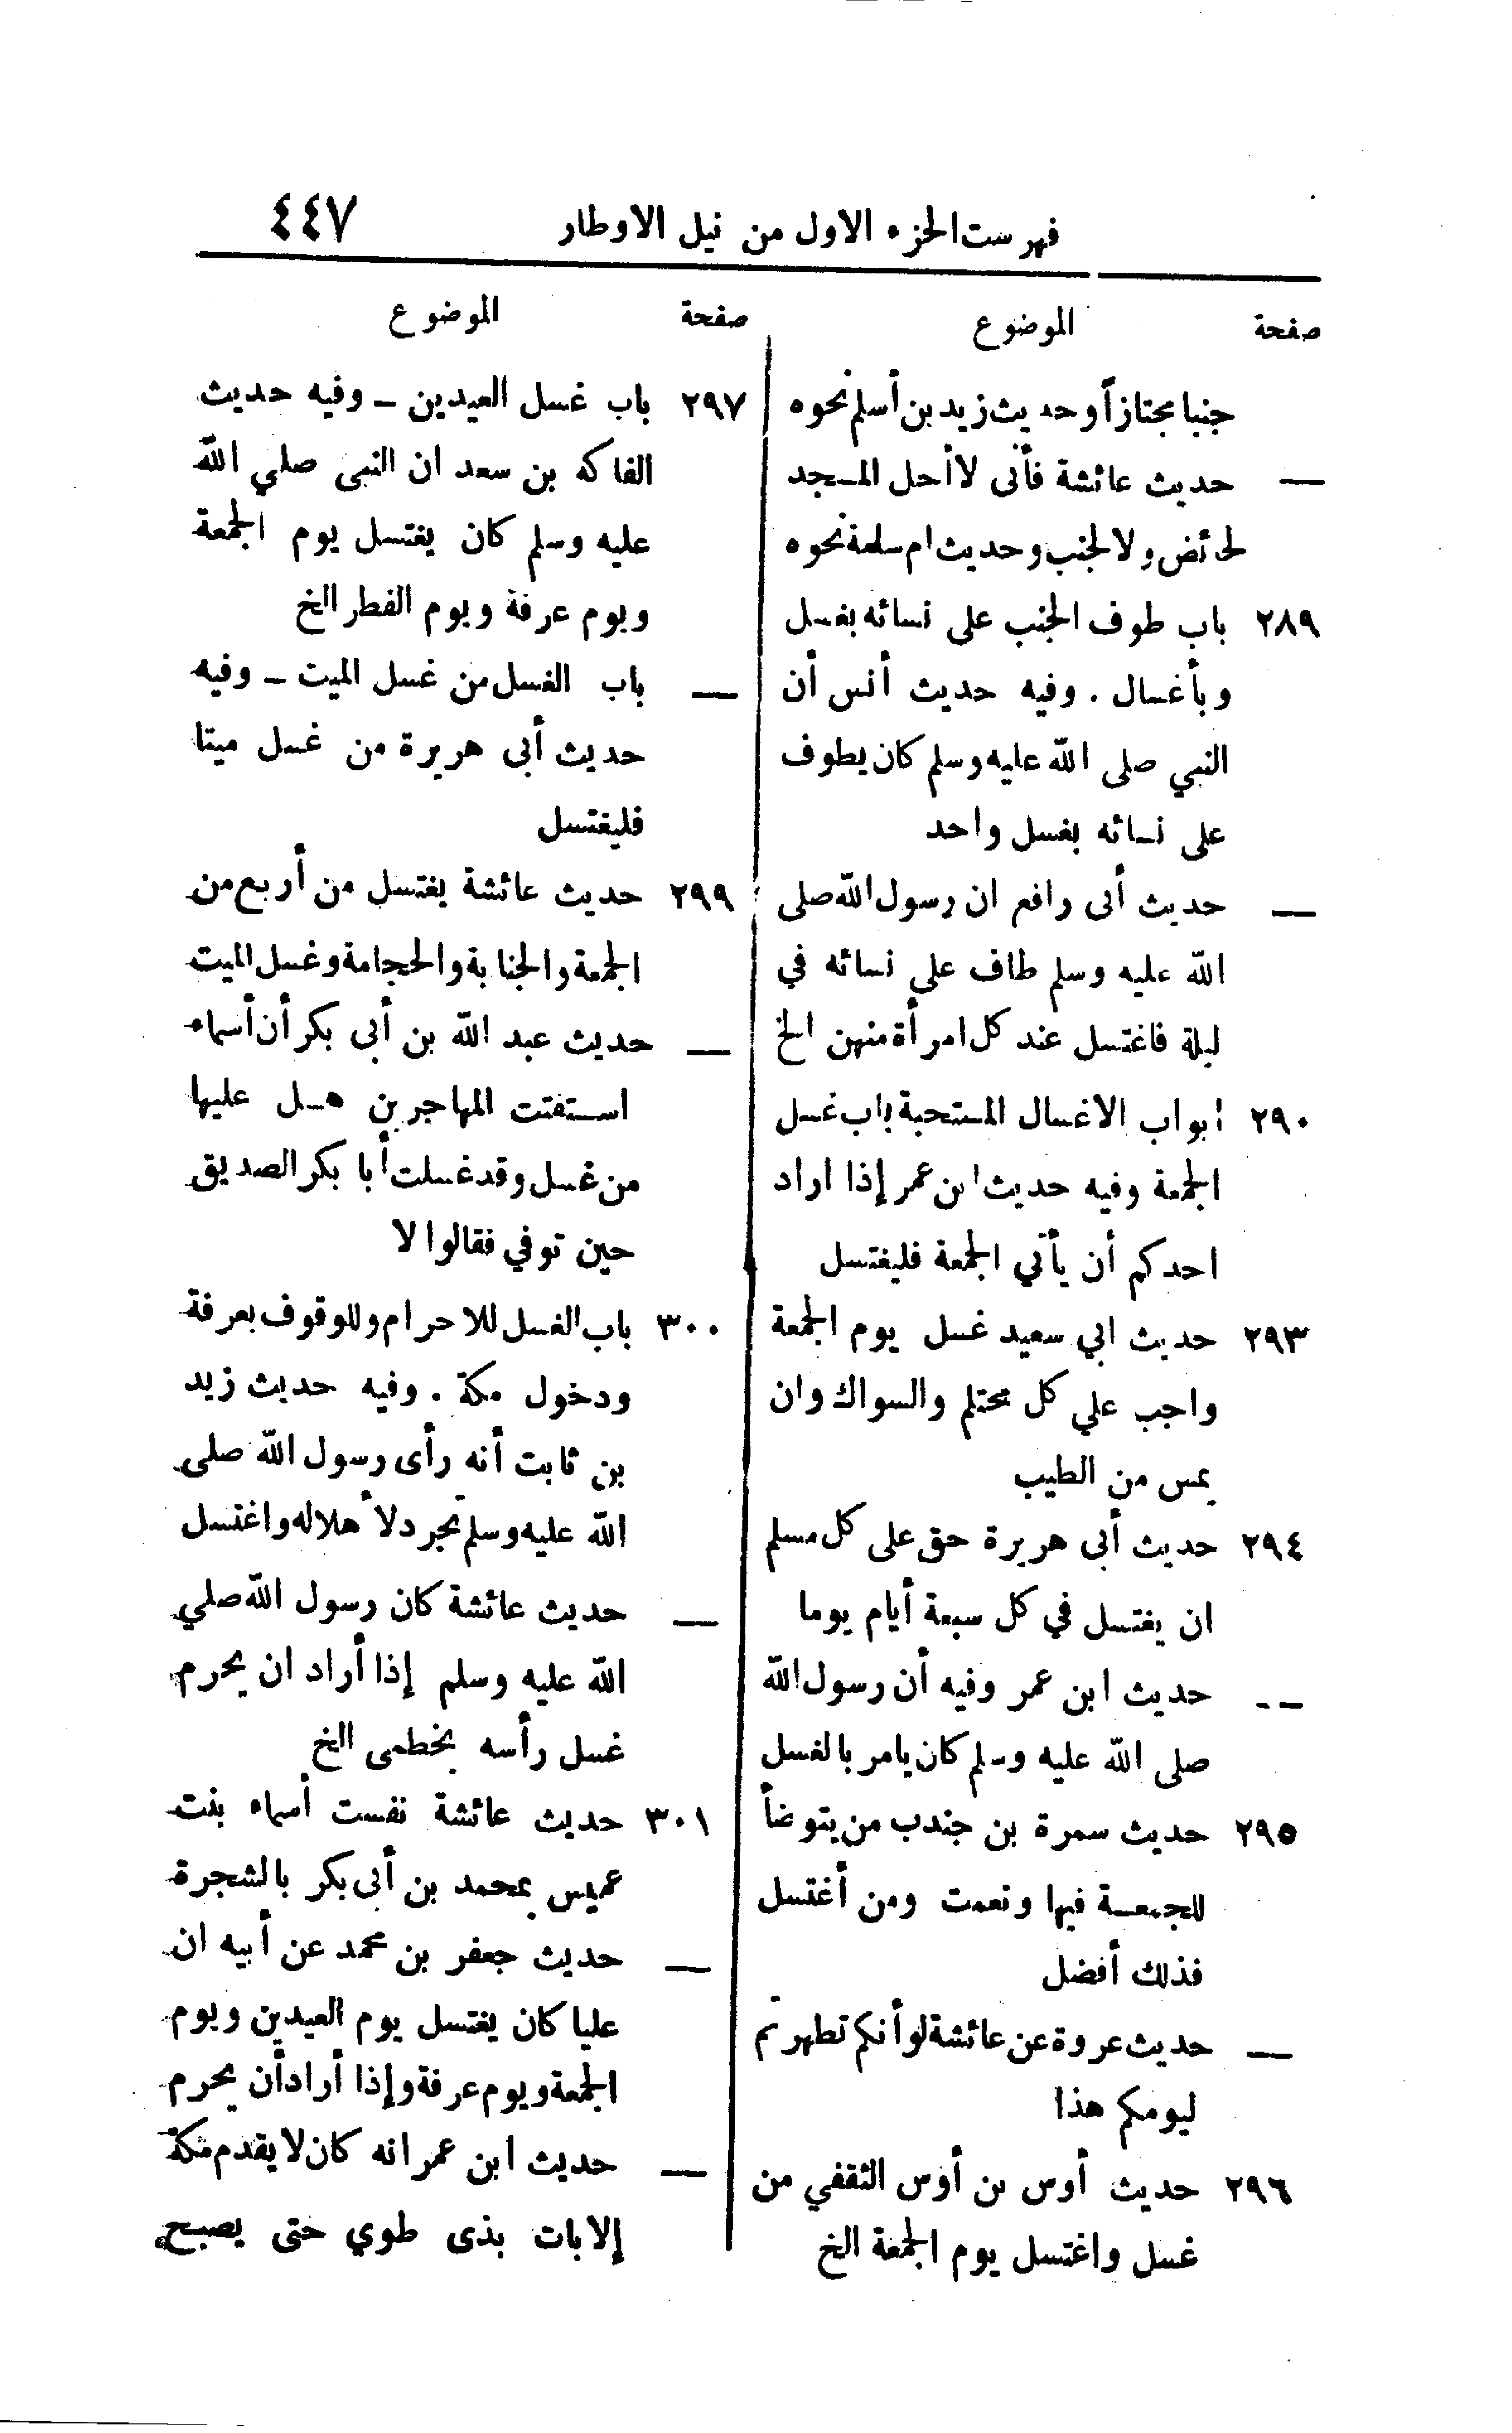 فهرست الجزء الاول من نيل الاوطار ٤٤٧
صفحة الموضوع
جنبا مجتازاً وحديث زيد بن أسلم نحوه
— حديث عائشة فأنى لاأحل المسجد
لحائض ولا لجنب وحديث ام سلمة نحوه
٢٨٩ باب طوف الجنب على نسائه بغسل
وبأغسال . وفيه حديث أنس أن
النبي صلى الله عليه وسلم كان يطوف
على نسائه بغسل واحد
— حديث أبى رافع ان رسول الله صلى
الله عليه وسلم طاف على نسائه في
ليلة فاغتسل عند كل امرأة منهن الخ
٢٩٠ ابواب الاغسال المستحبة باب غسل
الجمعة وفيه حديث ابن عمر إذا اراد
احدكم أن يأتي الجمعة فليغتسل
٢٩٣ حديث ابي سعيد غسل يوم الجمعة
واجب علي كل محتلم والسواك وان
يمس من الطيب
٢٩٤ حديث أبى هريرة حق على كل مسلم
ان يغتسل في كل سبعة أيام يوما
— حديث ابن عمر وفيه أن رسول الله
صلى الله عليه وسلم كان يامر بالغسل
٢٩٥ حديث سمرة بن جندب من يتوضأ
للجمعة فبها ونعمت ومن أغتسل
فذلك أفضل
— حديث عروة عن عائشة لو أنكم تطهرتم
ليومكم هذا
٢٩٦ حديث أوس بن أوس الثقفي من
غسل واغتسل يوم الجمعة الخ
صفحة الموضوع
٢٩٧ باب غسل العيدين – وفيه حديث
الفاكه بن سعد ان النبى صلي الله
عليه وسلم كان يغتسل يوم الجمعة
ويوم عرفة ويوم الفطر الخ
— باب الغسل من غسل الميت – وفيه
حديث أبى هريرة من غسل ميتا
فليغتسل
٢٩٩ حديث عائشة يغتسل من أربع من
الجمعة والجنابة والحجامة وغسل الميت
— حديث عبد الله بن أبى بكر أن أسماء
استفتت المهاجرين هل عليها
من غسل وقد غسلت أبا بكر الصديق
حين توفي فقالوا لا
٣٠٠ باب الغسل للاحرام وللوقوف بعرفة
ودخول مكة . وفيه حديث زيد
بن ثابت أنه رأى رسول الله صلى
الله عليه وسلم تجرد لأهلاله واغتسل
— حديث عائشة كان رسول الله صلي
الله عليه وسلم إذا أراد ان يحرم
غسل رأسه بخطمى الخ
٣٠١ حديث عائشة نفست أسماء بنت
عميس بمحمد بن أبى بكر بالشجرة
— حديث جعفر بن محمد عن أبيه ان
عليا كان يغتسل يوم العيدين ويوم
الجمعة ويوم عرفة وإذا أراد أن يحرم
— حديث ابن عمر انه كان لا يقدم مكة
إلا بات بذى طوي حتى يصبح